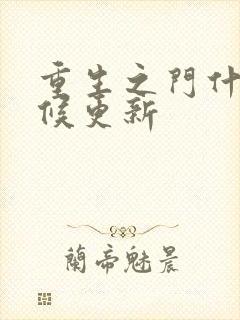 重生之門什
候更新
蘭帝魅晨